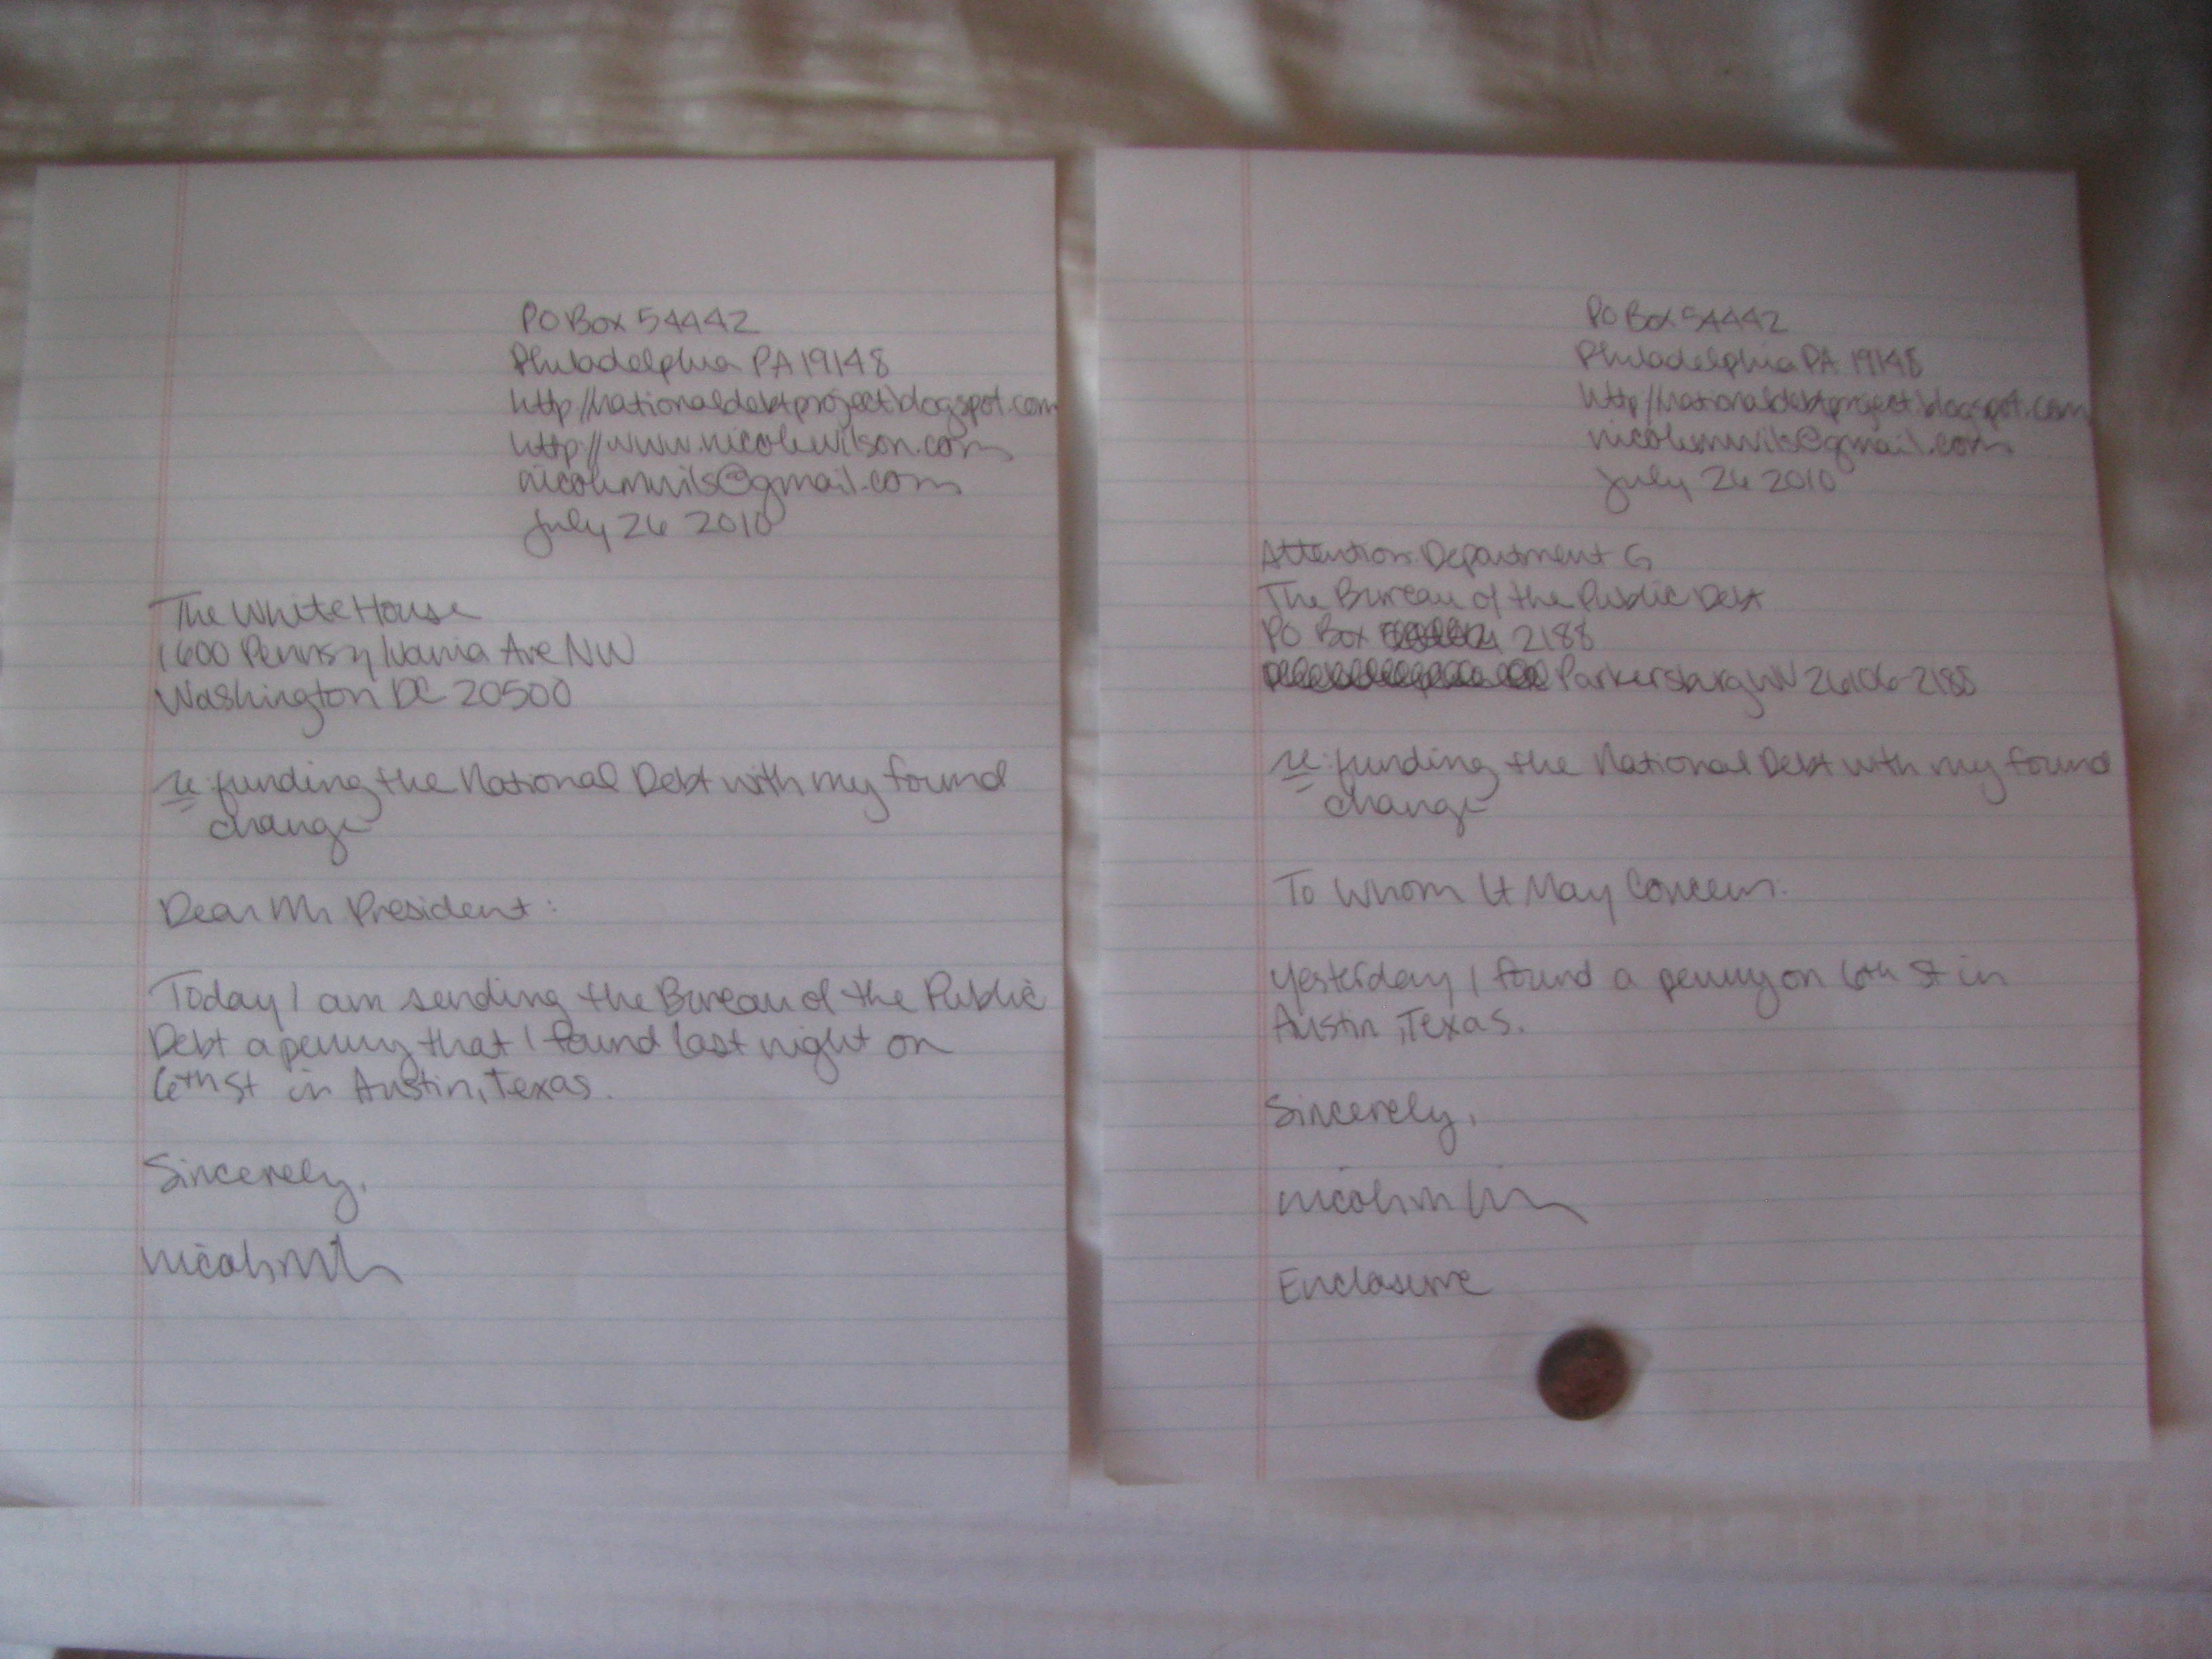 PO Box 54442
Philadelphia PA 19148
http://nationaldebtproject.blogspot.com
http://www.nicolewilson.com
nicolemwils@gmail.com
July 26 2010
The White House
1600 Pennsylvania Ave NW
Washington DC 20500
re: funding the National Debt with my found
change
Dear Mr President:
Today I am sending the Bureau of the Public
Debt a penny that I found last night on
6th St in Austin, Texas.
Sincerely,
PO Box 54442
Philadelphia PA 19148
http://nationaldebtproject.blogspot.com
nicolemwils@gmail.com
July 26 2010
Attention Department G
The Bureau of the Public Debt
PO Box 2188
Parkersburg WV 26106-2188
re: funding the National Debt with my found
change
To Whom It May Concern:
Yesterday I found a penny on 6th St in
Austin, Texas.
Sincerely,
Enclosure